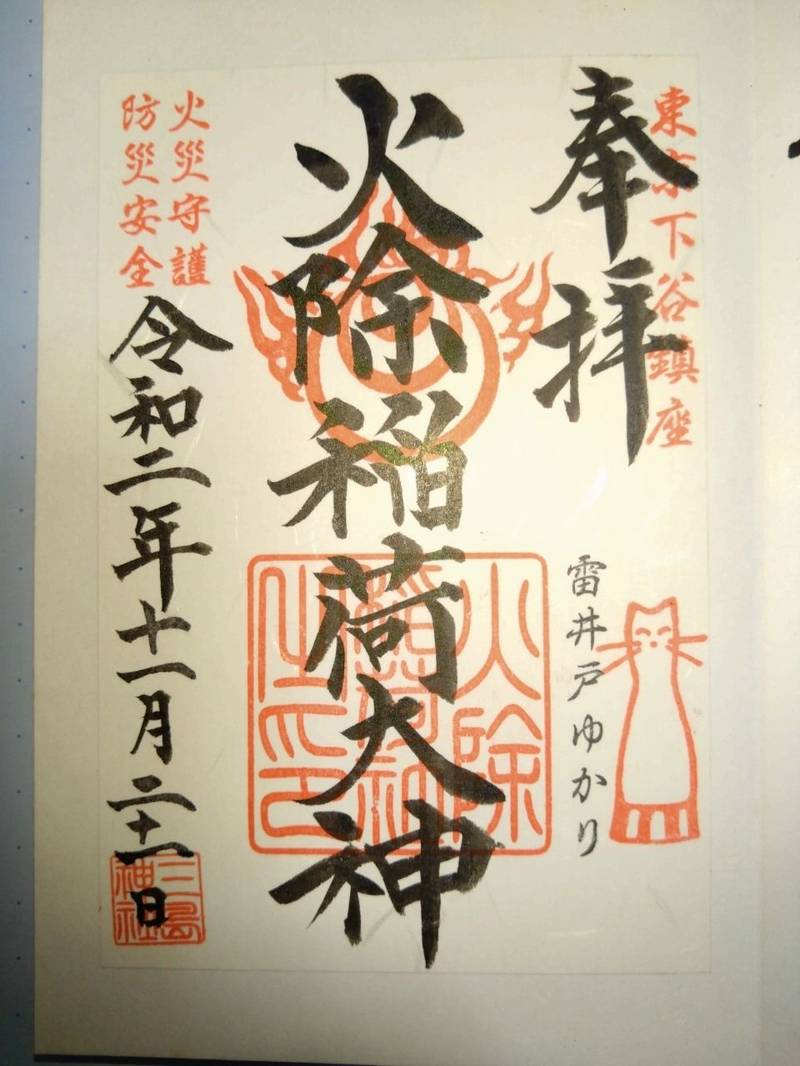 東京下谷鎮座
奉拝
雷井戸ゆかり
火除稲荷大神
火除
稲荷神
之印
火災守護
防災安全
令和二年十一月二十一日
三島
神社